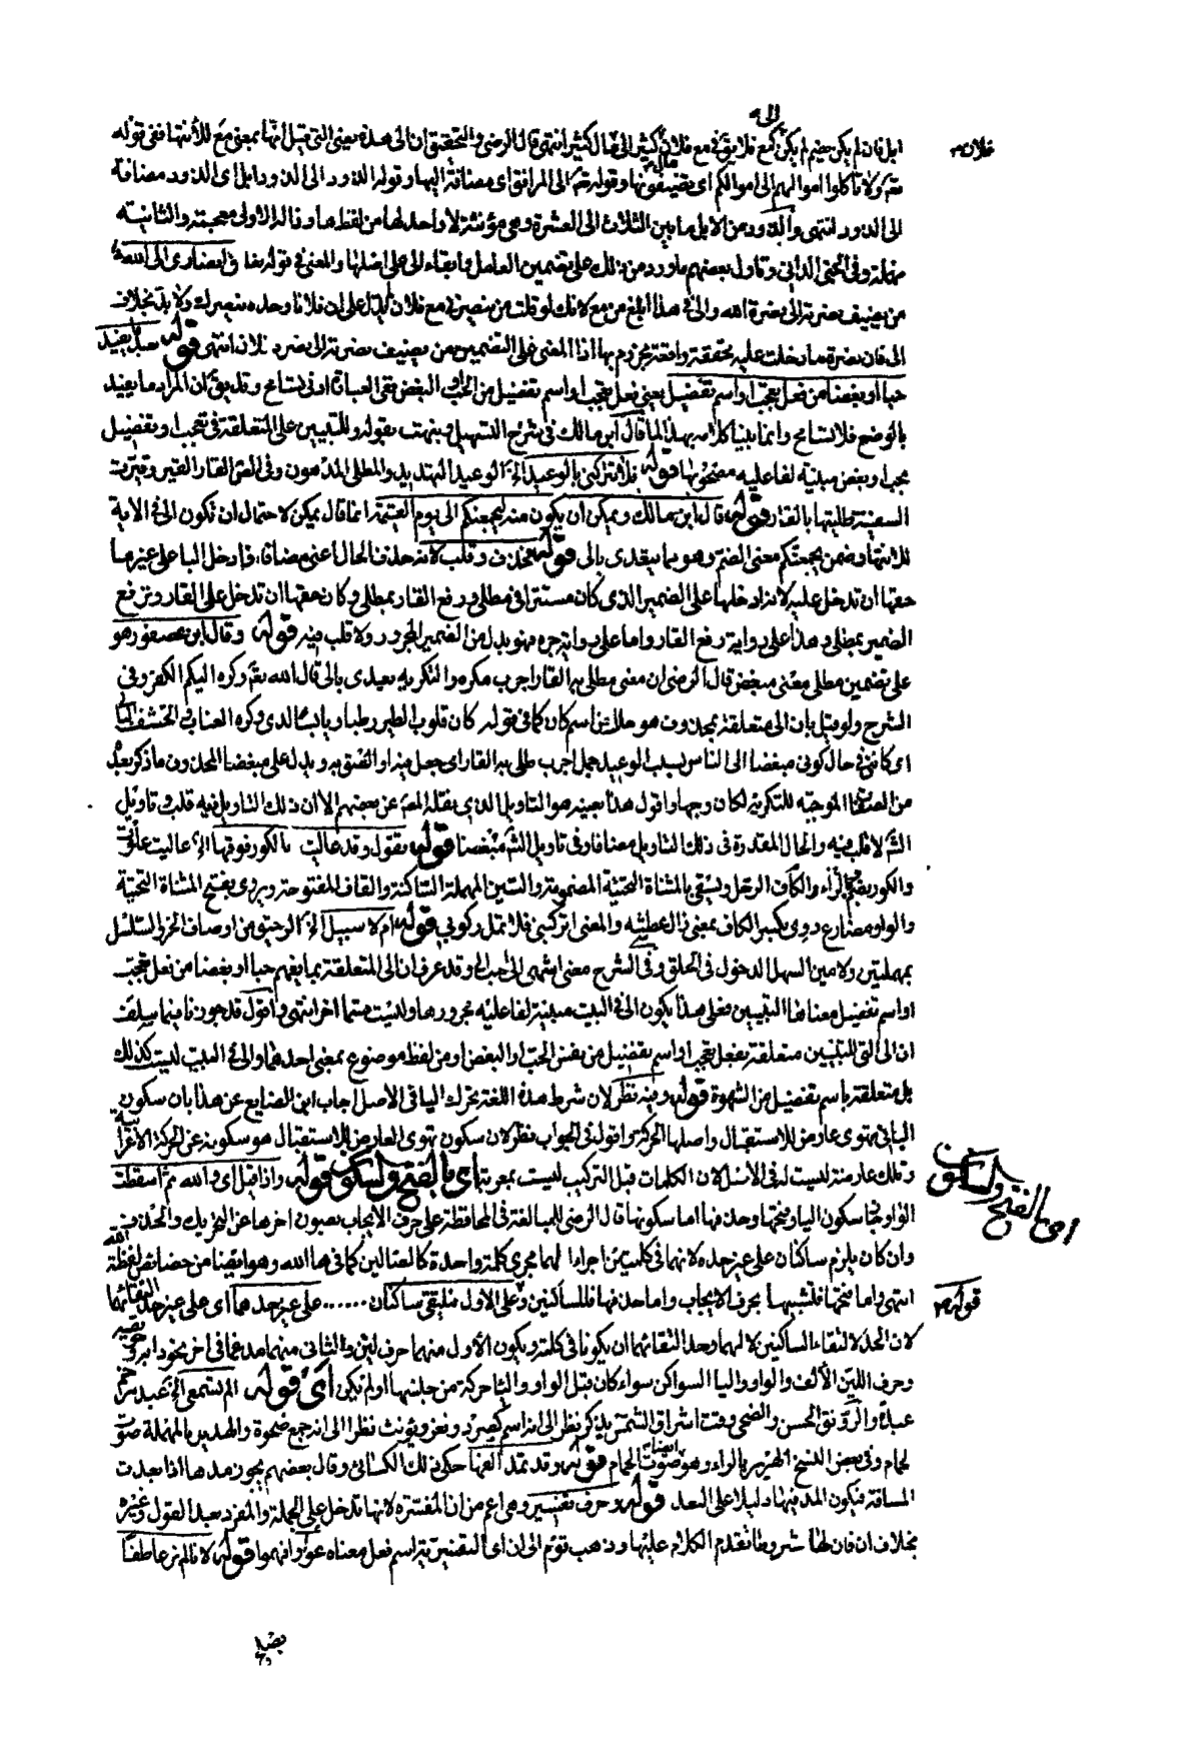 ابل فان لم يكن جمع لم يكن كمع فلا يقال في مع فلان كثير الى فلان مال كثير انتهى قال الرضى والتحقيق ان الى هذه يعنى التي قيل انها بمعنى مع للانتها ففى قوله
تع ولا تاكلوا اموالهم الى اموالكم اى تضيفونها وقوله تع الى المرافق اى مضافة اليها وقوله الذود الى الذود ابل اى الذود مضافة
الى الذود انتهى والذود من الابل ما بين الثلاث الى العشرة وهي مؤنثة لا واحد لها من لفظها وذاله الاولى معجمة والثانية
مهملة وفى الجنى الدانى وتاول بعضهم ما ورد من ذلك على تضمين العامل وابقاء الى على اصلها والمعنى في قوله تعا من انصارى الى الله
من يضيف نصرته الى نصرة الله والى في هذا ابلغ من مع لانك لو قلت من ينصرنى مع فلان لم يدل على ان فلانا وحده ينصرك ولا بد بخلاف
الى فان نصرة ما دخلت عليه محققة واقعة مجزوم بها اذا المعنى على التضمين من يضيف نصرته الى نصرة فلان انتهى قوله بعد ما يفيد
حبا او بغضا من فعل تعجب او اسم تفضيل يعنى فعل تعجب او اسم تفضيل من الحب او البغض ففى العبارة ادنى تسامح وقد يقال ان المراد ما يفيد
بالوضع فلا تسامح وانما بنينا كلامه بهذا لما قال ابن مالك في شرح التسهيل ونبهت بقولى وللتبيين على المتعلقة في تعجب او تفضيل
بحب او بغض مبنية لفاعلية مصحوبها قوله فلا تتركنى بالوعيد الخ الوعيد التهديد والمطلى المدهون وفى القار القير وقيرت
السفينة طليتها بالقار قوله قال ابن مالك ويمكن ان يكون منه ليجمعنكم الى يوم القيمة انما قال يمكن لاحتمال ان تكون الى في الاية
للانتها وضمن يجمعنكم معنى الضم وهو مما يتعدى بالى قوله بمحذوف وقلب لانه حذف الحال اعنى مضافا، وادخل البا على غير ما
حقها ان تدخل عليه لانه ادخلها على الضمير الذى كان مستترا في مطلى ورفع القار بمطلى وكان حقها ان تدخل على القار وترفع
الضمير بمطلى وهذا على رواية رفع القار واما على رواية جره فهو بدل من الضمير المجرور ولا قلب فيه قوله وقال ابن عصفور هو
على تضمين مطلى معنى مبغض قال الرضى ان معنى مطلى به القار اجرب مكره والتكريه يعدى بالى قال الله تع وكره اليكم الكفر وفى
الشرح ولو قيل بان الى متعلقة بمحذوف هو حال من اسم كان كما في قوله كان قلوب الطير رطبا ويابسا لدى وكره العناب والحشف البالى
اى كاننى في حال كونى مبغضا الى الناس بسبب الوعيد جمل اجرب طلى به القار اى جعل فيه او الصق به ويدل على مبغضا المحذوف ما ذكر بعد
من الصفة الموجبة للتكريه لكان وجها واقول هذا بعينه هو التاويل الذى نقله المص عن بعضهم الا ان ذلك التاويل فيه قلب وتاويل
الش لا قلب فيه والحال المقدرة فى ذلك التاويل مضافا وفى تاويل الش مبغضا قوله تقول وقد عاليت بالكور فوقها الخ عاليت علوت
والكور بضم الراء والكاف الرحل ويسقى بالمثناة التحتية المضمومة والسين المهملة الساكنة والقاف المفتوحة ويروى بفتح المثناة التحتية
والواو مضارع روى بكسر الكاف بمعنى زال عطشه والمعنى اتركنى فلا تمل ركوبى قوله ام لا سبيل الخ الرحيق من اوصاف الخمر والسلسل
بمهملتين ولامين السهل الدخول في الحلق وفى الشرح معنى اشهى الى احب الى وقد عرف ان الى المتعلقة بما يفهم حبا او بغضا من فعل تعجب
او اسم تفضيل معناها التبيين فعلى هذا يكون الى في البيت مبينة لفاعلية مجرورها وليست قسما اخر انتهى واقول قد جوزنا فيما سلف
ان الى التى للتبيين متعلقة بفعل تعجب او اسم تفضيل من نفس الحب او البغض او من لفظ موضوع بمعنى احدهما والى في البيت ليست كذلك
بل متعلقة باسم تفضيل من الشهوة قوله وفيه نظر لان شرط هذه اللغة تحرك اليا في الاصل اجاب ابن الصايع عن هذا بان سكون
اليا في تهوى عارض للاستقبال واصلها الحركة واقول في الجواب نظر لان سكون تهوى العارض للاستقبال هو سكونه عن الحركة الاعرابية
وتلك عارضة ليست له في الاصل لان الكلمات قبل التركيب ليست بمعربة اى بالفتح والسكون قوله واذا قيل اى والله ثم اسقطت
الواو جاز سكون اليا وفتحها وحذفها اما سكونها قال الرضى للمبالغة في المحافظة على حرف الايجاب بصون اخرها عن التحريك والحذف
وان كان يلزم ساكنان على غير حده لانهما في كلمتين اجراء لهما مجرى كلمة واحدة كالضالين كما في ها الله وهو ايضا من خصائص لفظة الله
انتهى واما فتحها فلشبهها بحرف الايجاب واما حذفها فللساكنين وعلى الاول فيلتقى ساكنان ...... على غير حدهما اى على غير حد التقائهما
لان الحد لالتقاء الساكنين لا لهما وحد التقائهما ان يكونا في كلمة ويكون الاول منهما حرف لين والثانى منهما مدغما في اخر نحو دابه وخويصه
وحرف اللين الالف والواو واليا السواكن سواء كان قبل الواو واليا حركة من جنسها او لم يكن اى قوله الم تسمعى الخ عبد مرخم
عبدة والرونق الحسن والضحى وقت اشراق الشمس يذكر نظرا الى انه اسم كصرد ونغر ويؤنث نظرا الى انه جمع ضحوة والهديل بالمهملة صوت
الحمام وفى بعض النسخ الهدير بالراء وهو ايضا صوت الحمام قوله وقد تمد الفها حكى ذلك الكسائى وقال بعضهم يجوز مدها اذا بعدت
المسافة فيكون المد فيها دليلا على البعد قوله وحرف تفسير وهى اعم من ان المفسرة لانها تدخل على الجملة والمفرد بعد القول وغيره
بخلاف ان فان لها شروطا تقدم الكلام عليها وذهب قوم الى ان اى التفسيرية اسم فعل معناه عوا وافهموا قوله لانا لم نر عاطفا
فلان صح
اى بالفتح والسكون
قوله صح
يصلح